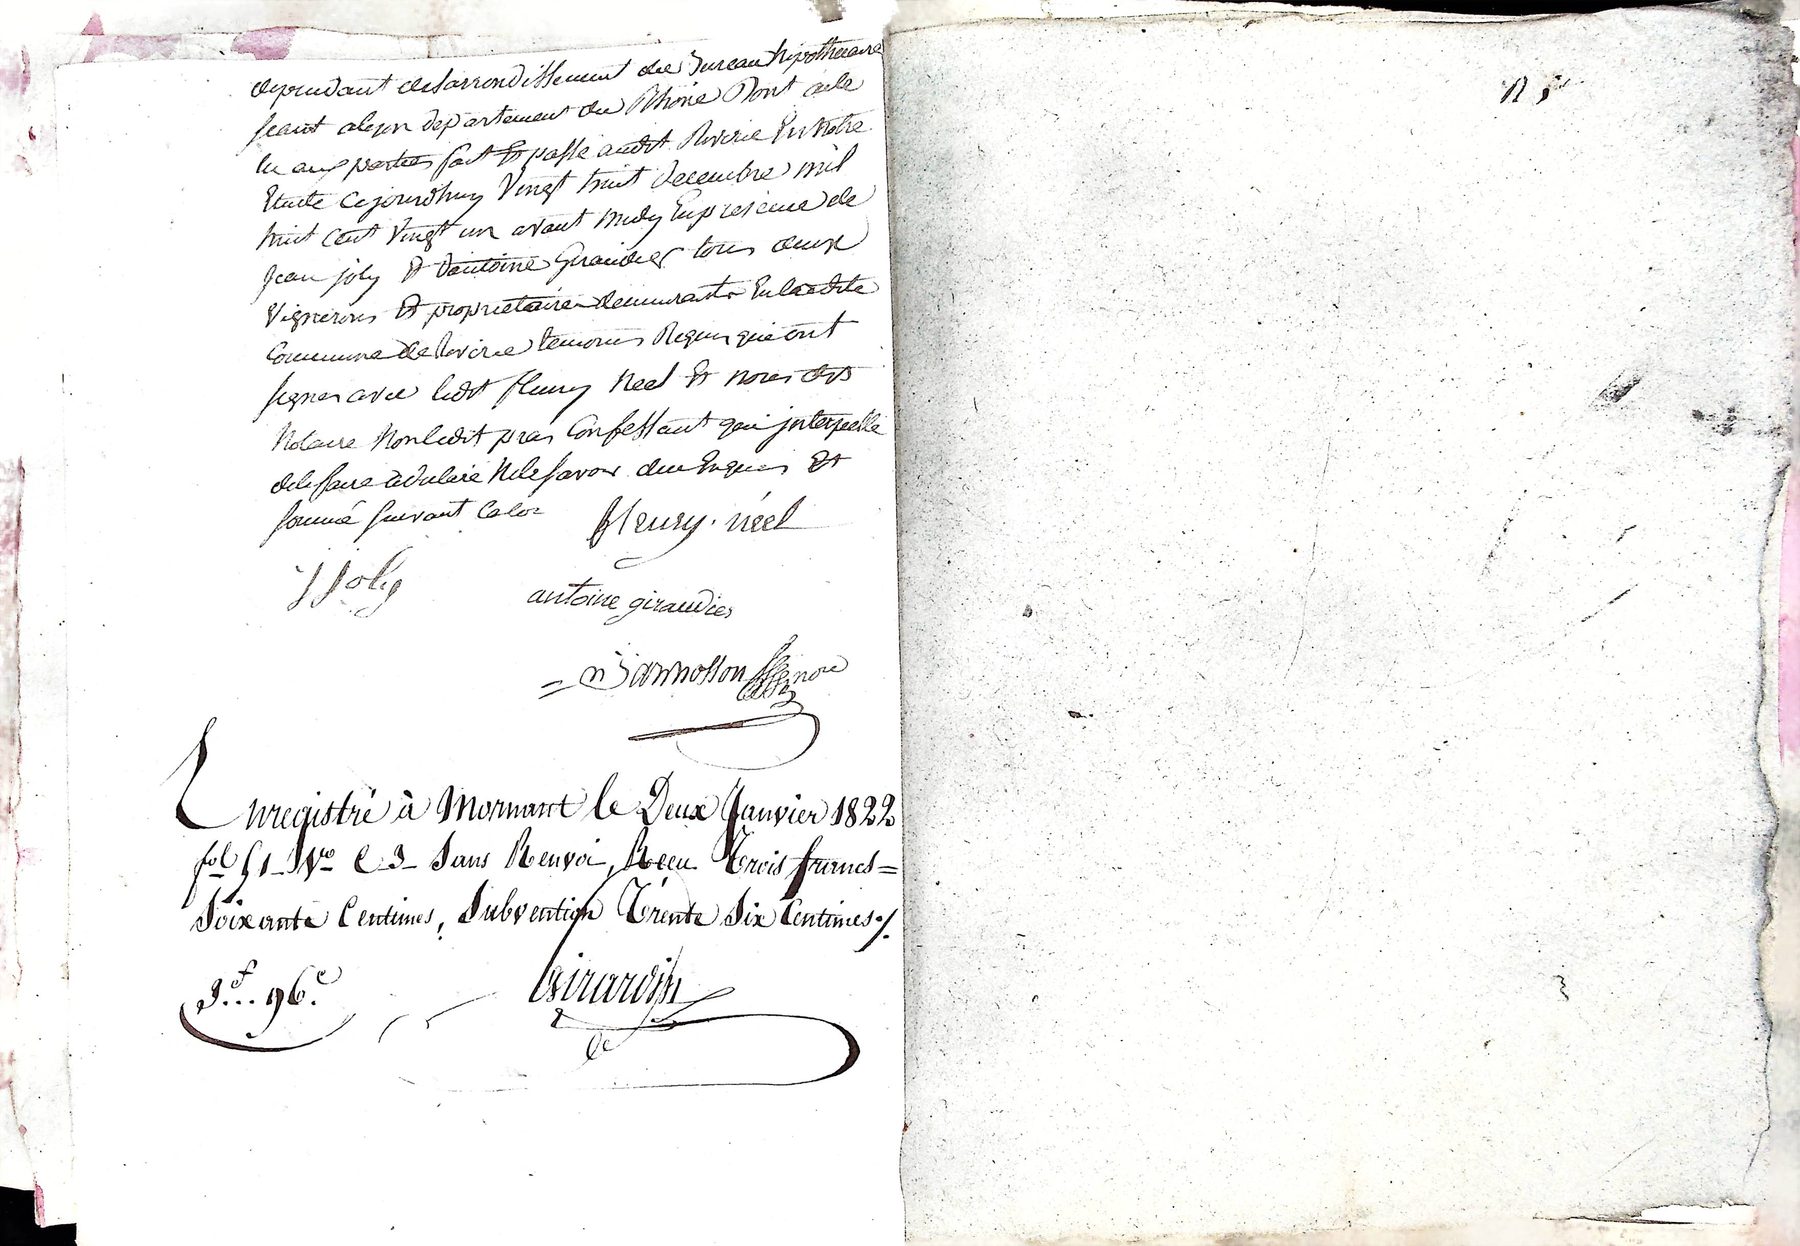 dependant delarrondissement du Bureau hipothecaire
seant alyon departement du Rhône Dont acte
lu aux parties fait Et passé audit Riverie En notre
Etude cejourdhuy Vingt huit decembre mil
huit cent Vingt un avant midy En presence de
jean joly Et dantoine Giraudier tous deux
Vignerons Et proprietaires demeurants En ladite
Commune de Riverie temoins Requis qui ont
signés avec ledit fleury Neel Et nous dit
Notaire Non ledit pras Confessant qui jnterpellé
de le faire a declaré Ne le savoir de ce Enquis Et
sommé suivant la loi
fleury. néel
J Joly
antoine giraudier
Enregistré à Mornant le Deux Janvier 1822
fol 51 Vo C 3 Sans Renvoi, Recu Trois francs =
Soixante Centimes, Subvention Trente Six Centimes ./.
3f... 96c.
Girardin